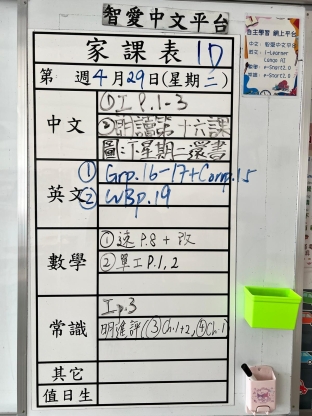 智愛中文平台
家課表 1D
第 週4月29日(星期二)
中文
①工P.1-3
②
讀第十六課
圖:下星期二還書
英文
① Grp.16-17+Comp.15
② WBp.19
數學
①速 P.8 + 改
②單工P.1,2
常識
工p.3
明進評(③Ch.1+2,④Ch.1)
其它
值日生
自主學習 網上平台
中文: 智愛中文平台